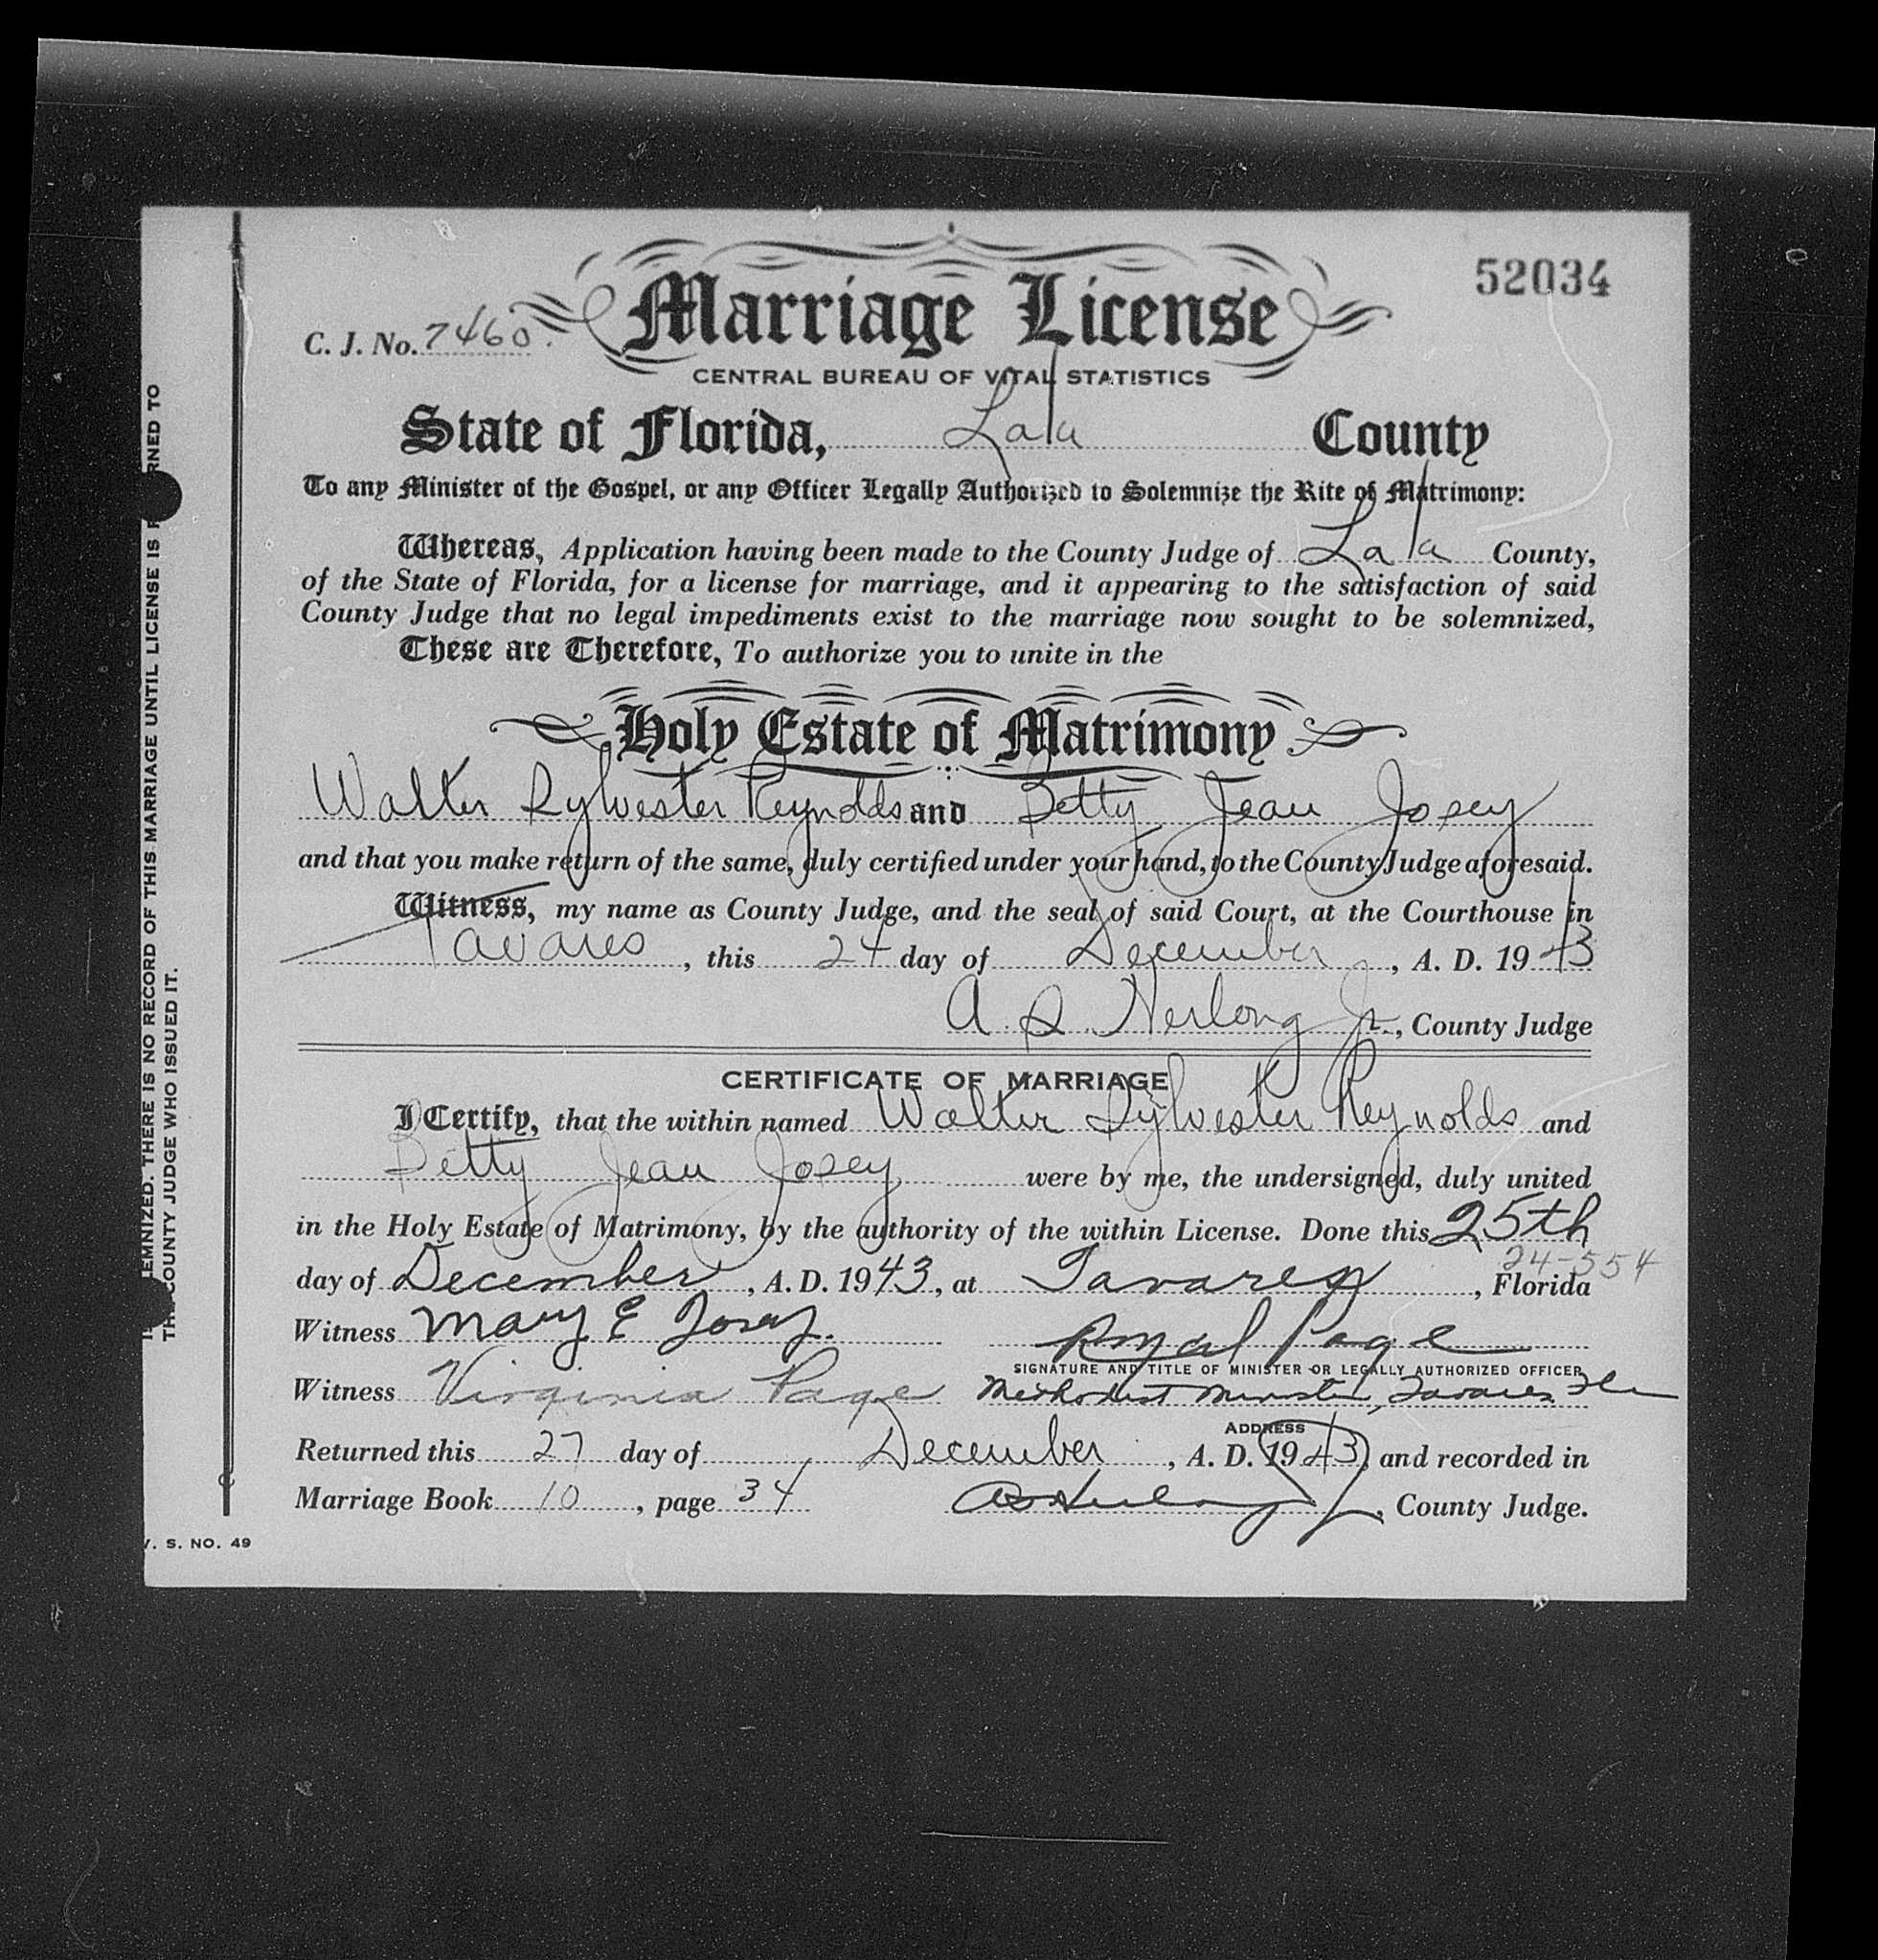 52034
C. J. No. 7460.
Marriage License
CENTRAL BUREAU OF VITAL STATISTICS
State of Florida, Lake County
To any Minister of the Gospel, or any Officer Legally Authorized to Solemnize the Rite of Matrimony:
Whereas, Application having been made to the County Judge of Lake County,
of the State of Florida, for a license for marriage, and it appearing to the satisfaction of said
County Judge that no legal impediments exist to the marriage now sought to be solemnized,
These are Therefore, To authorize you to unite in the
Holy Estate of Matrimony
Walter Sylvester Reynolds and Betty Jean Josey
and that you make return of the same, duly certified under your hand, to the County Judge aforesaid.
Witness, my name as County Judge, and the seal of said Court, at the Courthouse in
Tavares, this 24 day of December, A. D. 1943
A. S. Herlong Jr., County Judge
CERTIFICATE OF MARRIAGE
I Certify, that the within named Walter Sylvester Reynolds and
Betty Jean Josey were by me, the undersigned, duly united
in the Holy Estate of Matrimony, by the authority of the within License. Done this 25th
24-554
day of December, A. D. 1943, at Tavares, Florida
Witness Mary E Josey. Royal Page
SIGNATURE AND TITLE OF MINISTER OR LEGALLY AUTHORIZED OFFICER
Witness Virginia Page Methodist Minister, Tavares Fla
ADDRESS
Returned this 27 day of December, A. D. 1943, and recorded in
Marriage Book 10, page 34 A S Herlong Jr, County Judge.
V. S. NO. 49
EMNIZED. THERE IS NO RECORD OF THIS MARRIAGE UNTIL LICENSE IS RNED TO
THE COUNTY JUDGE WHO ISSUED IT.